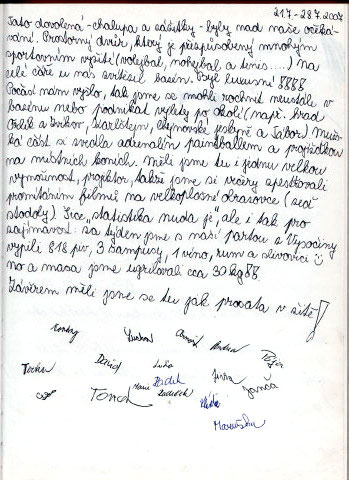 21.7.-28.7.2007
Tato dovolená - chalupa a zážitky - byly nad naše očeká-
vání. Prostorný dvůr, který je přizpůsobený mnohým
sportovním vyžití (volejbal, nohejbal a tenis.....) Na
celé čáře u nás zvítězil bazén. Byl luxusní !!!!
Počasí nám vyšlo, tak jsme se mohli rochnit neustále v
bazénu nebo podnikat výlety po okolí (např. hrad
Orlík a Zvíkov, Karlštejn, Chýnovské jeskyně a Tábor). Mužs-
ká část si svedla adrenalin paintballem a projížďkou
na místních koních. Měli jsme tu i jednu velkou
vymoženost, projektor, takže jsme si večery zpestřovali
promítáním filmů na velkoplošné obrazovce (zeď
stodoly) Sice "statistika nuda je", ale i tak pro
zajímavost: za týden jsme s naší partou z Vysočiny
vypili 818 piv, 3 šampusy, 1 víno, rum a slivovici
no a masa jsme ugrilovali cca 30 kg !!.
Závěrem měli jsme se tu jak prasata v žitě!
Ondra
David Luďa Jiřina
Tomáš Hanič Zdeněk Janča
Maruška